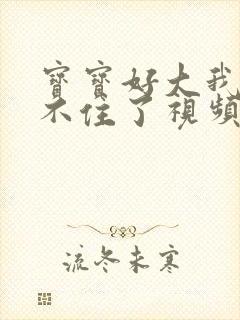 寶寶好大我
不住了視頻
流冬未寒